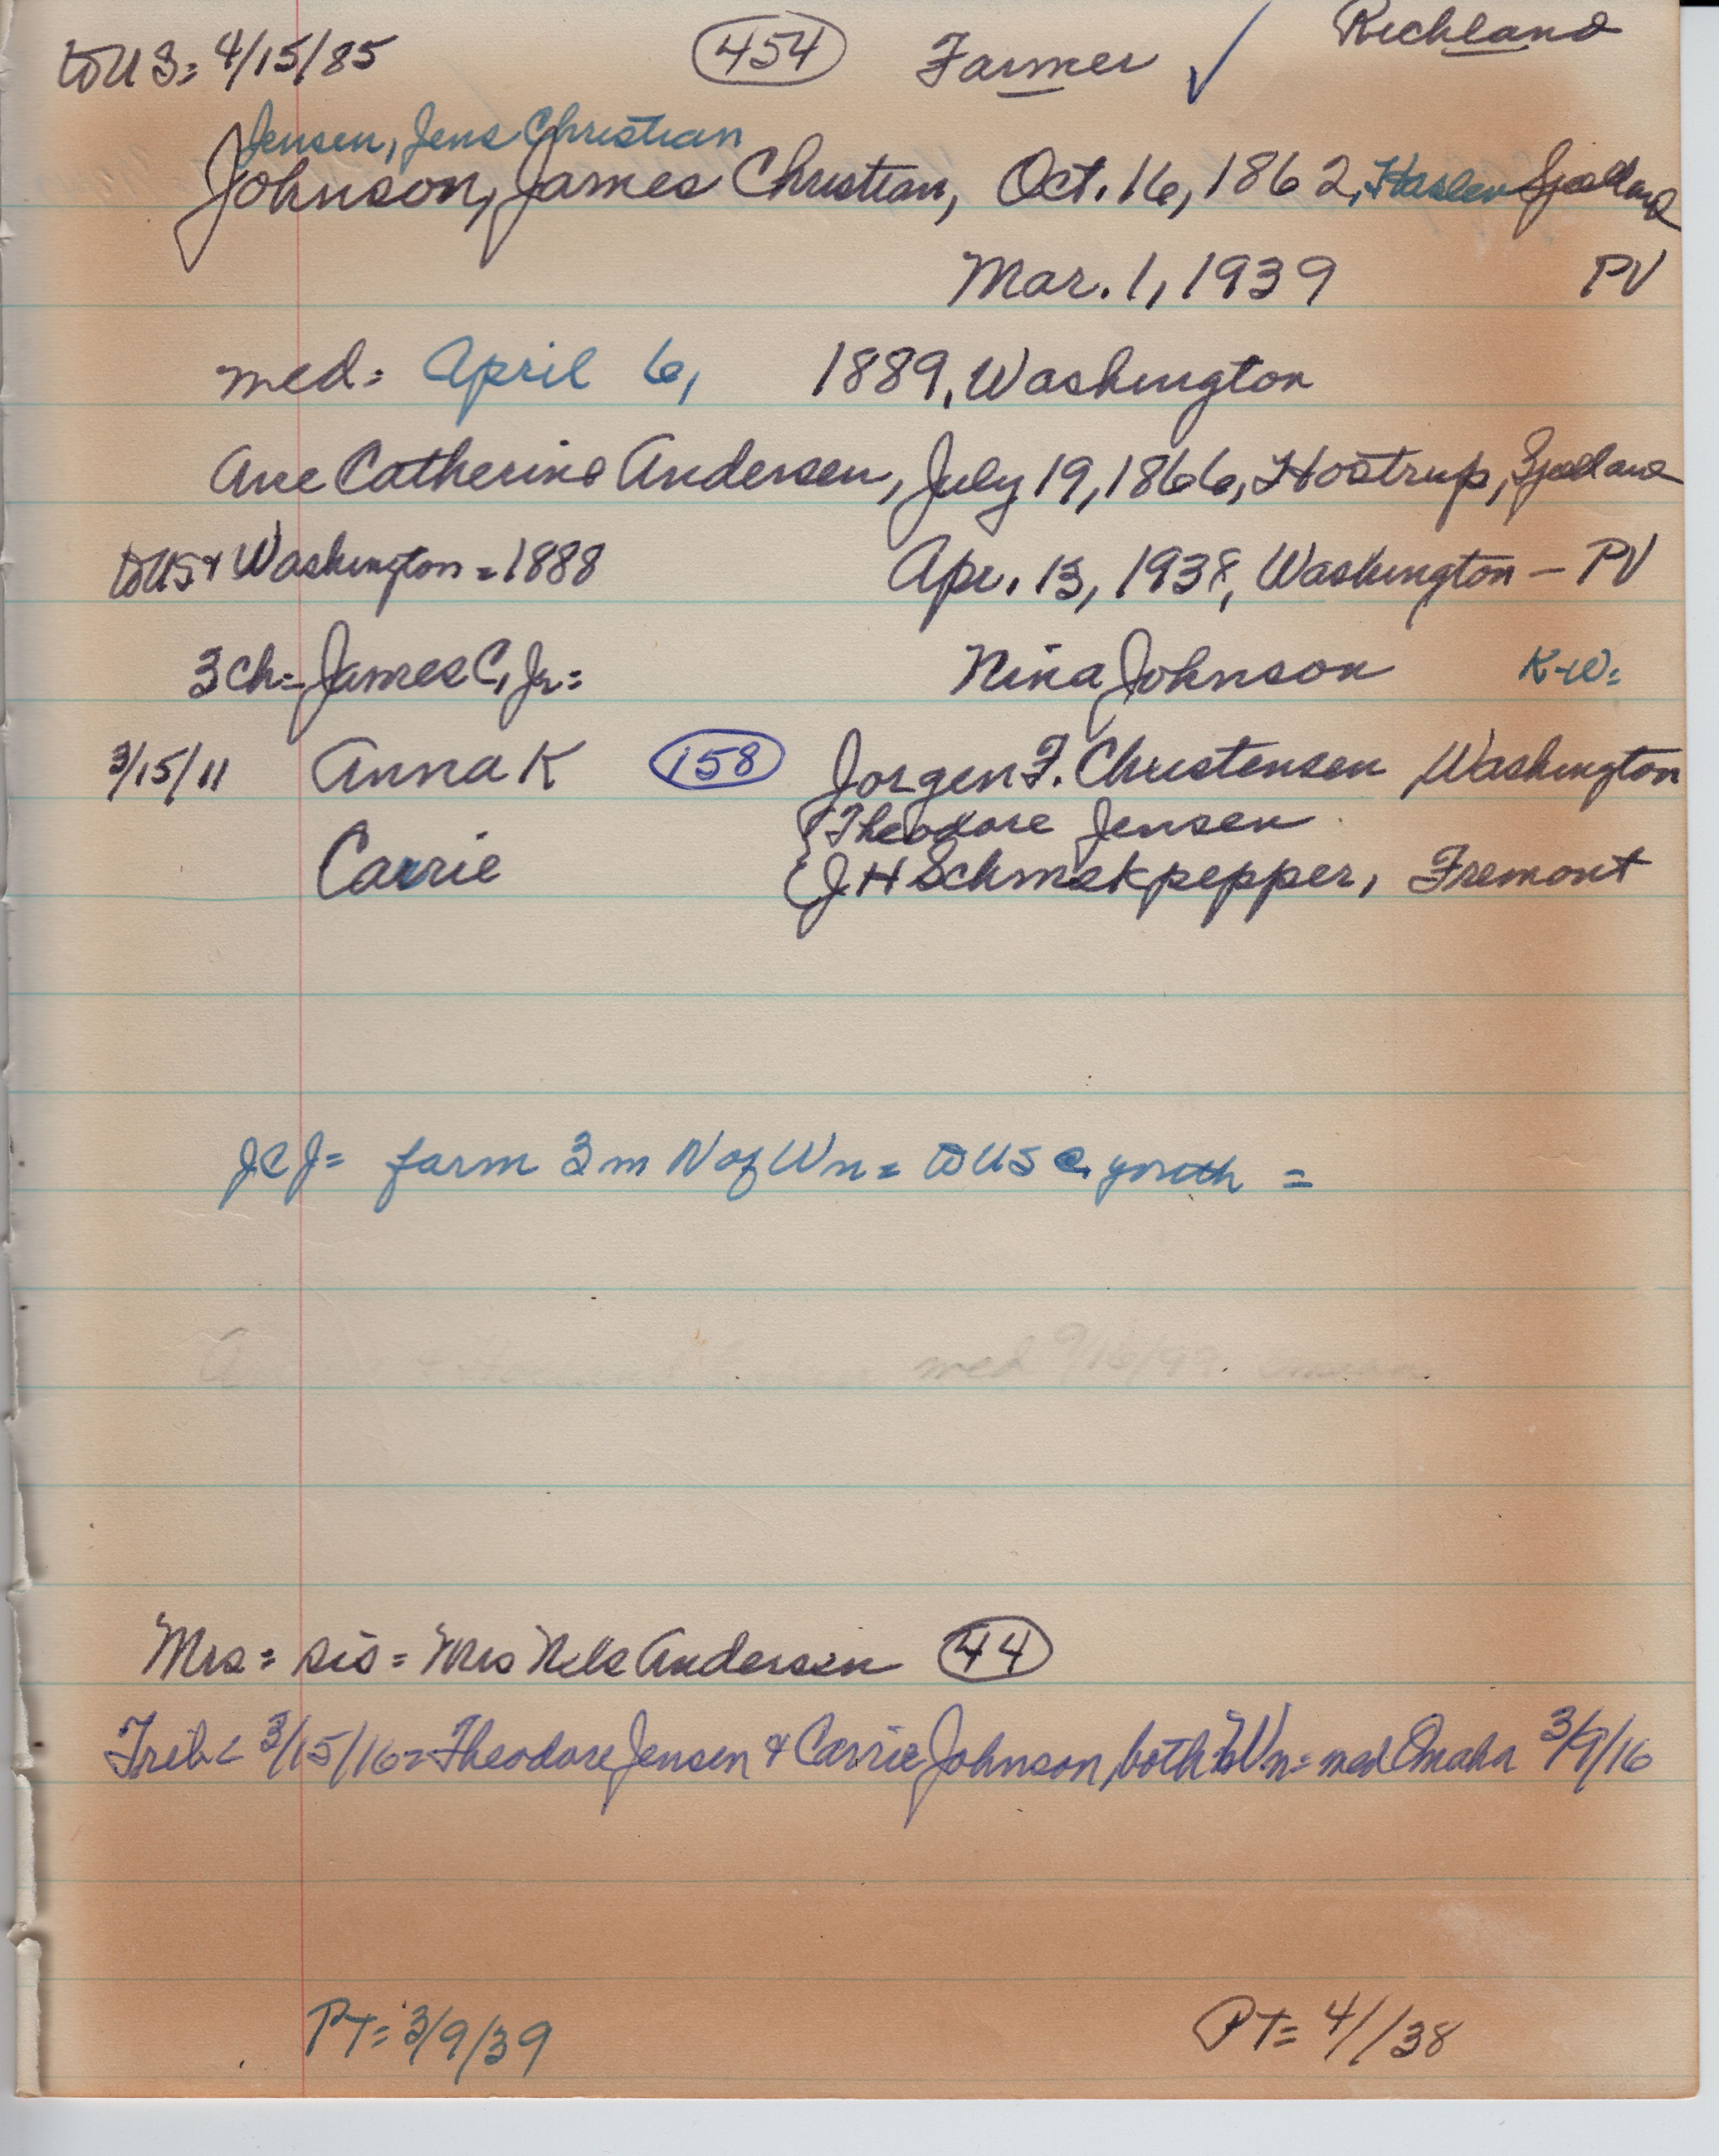 to US= 4/15/85 454 Farmer ✓ Richland
Jensen, Jens Christian
Johnson, James Christian, Oct. 16, 1862, Haslev Sjelland
Mar. 1, 1939 PV
med= April 6, 1889, Washington
Ane Catherine Andersen, July 19, 1866, Hostrup, Sjelland
to US & Washington = 1888 Apr. 13, 1938, Washington - PV
3 ch= James C, Jr= Nina Johnson K-W=
3/15/11 Anna K 158 Jorgen F. Christensen, Washington
Theodore Jensen
Carrie J H Schmekpepper, Fremont
JCJ= farm 3 m N of Wn= to US c. youth =
med 9/16/99
Mrs= sis= Mrs Nels Andersen 44
Trib< 3/15/16= Theodore Jensen & Carrie Johnson, both Wn= med Omaha 3/9/16
PT= 3/9/39 PT= 4/ /38